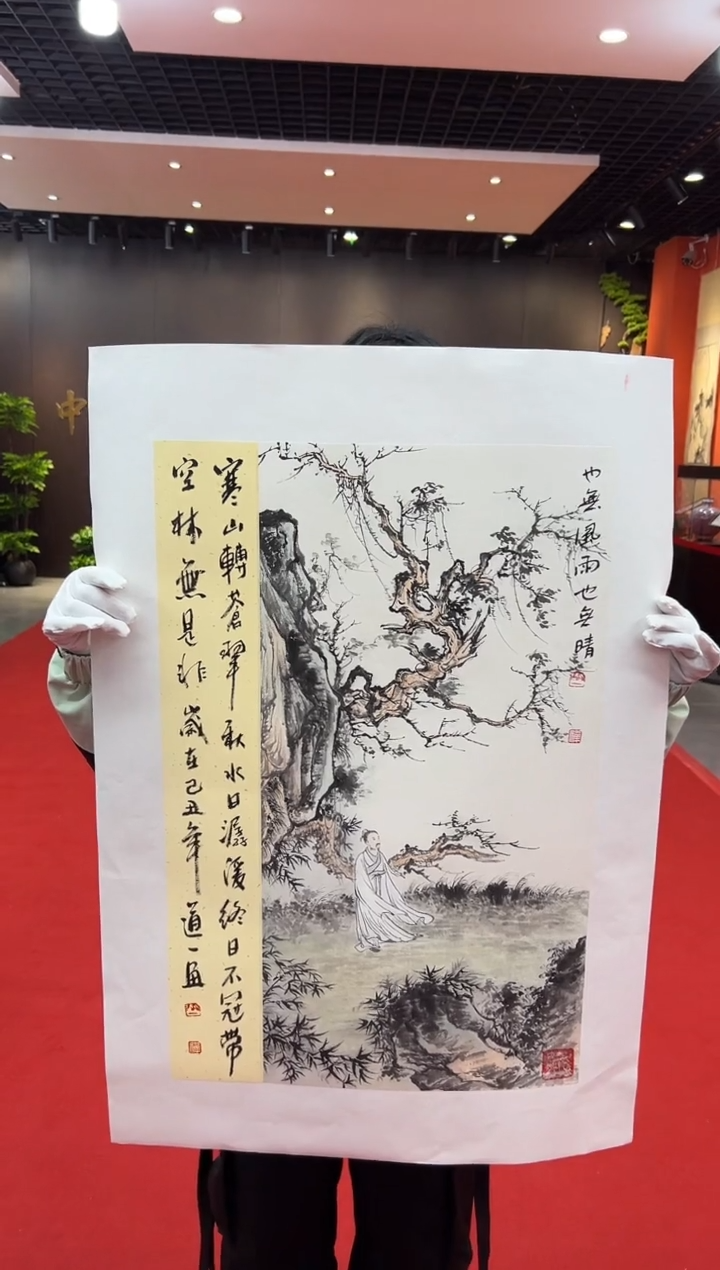 也無風雨也無晴
寒山轉蒼翠秋水日潺湲終日不冠帶
空林無是非歲在己丑年道一画
中